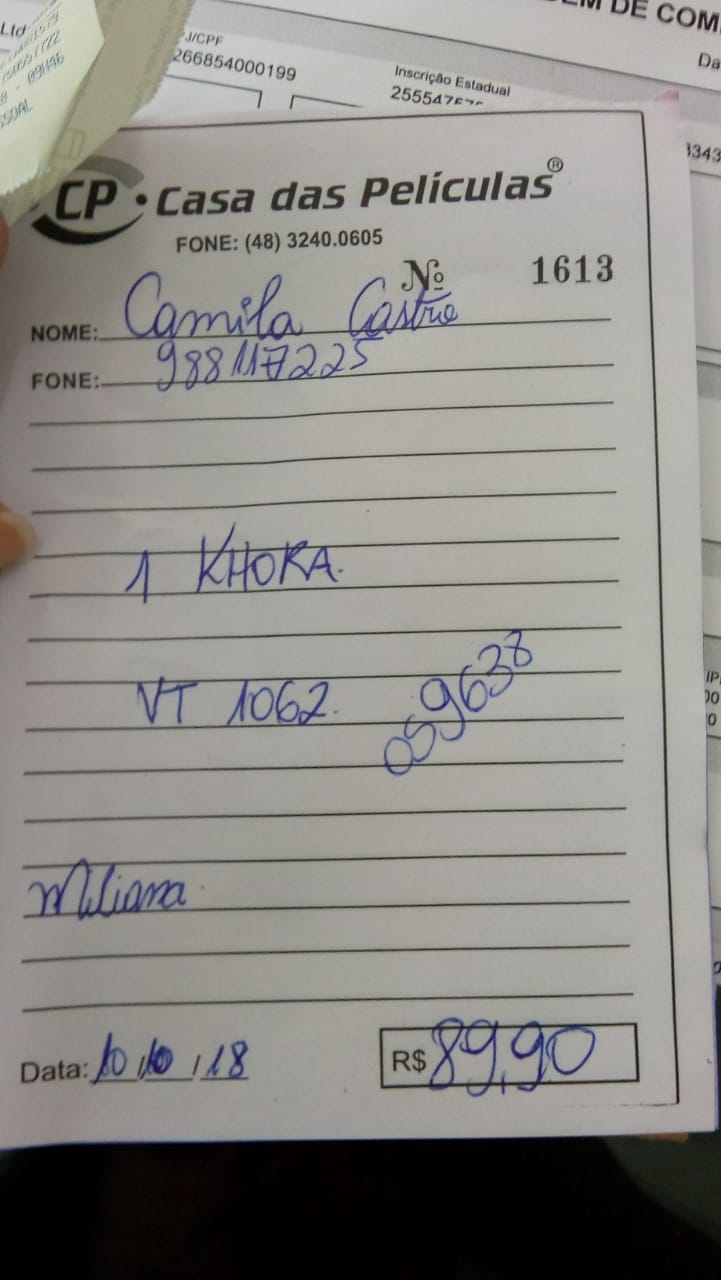 Ltd
J/CPF
266854000199
Inscrição Estadual
DE COM
Da
3343
CP • Casa das Películas®
FONE: (48) 3240.0605
Nº 1613
NOME: Camila Castro
FONE: 988117225
1 KHORA.
VT 1062. 059638
Miliana
Data: 10/10/18 R$ 89,90